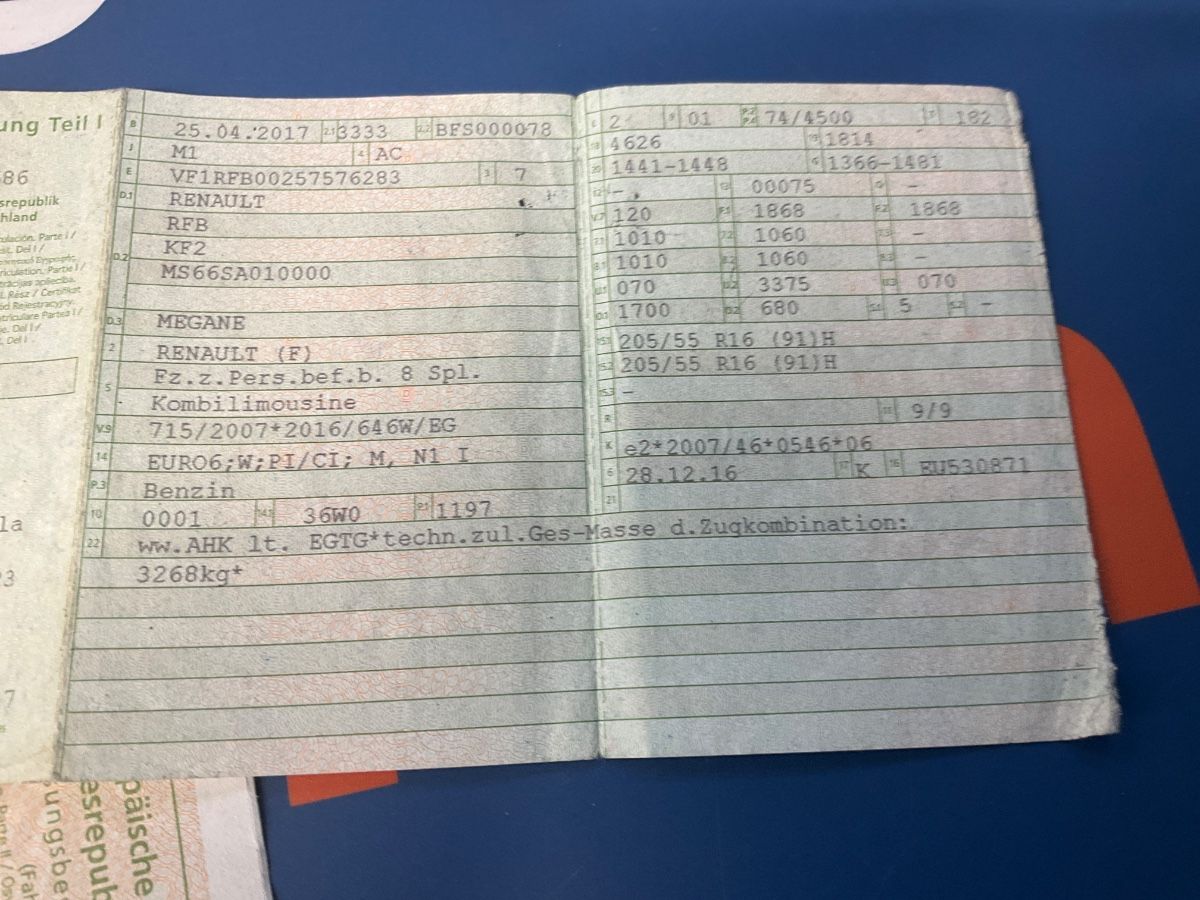 ung Teil I
86
srepublik
hland
culación. Parte I /
B 25.04.2017 2.1 3333 2.2 BFS000078
J M1 4 AC
E VF1RFB00257576283 3 7
D.1 RENAULT
RFB
D.2 KF2
MS66SA010000
D.3 MEGANE
2 RENAULT (F)
5 Fz.z.Pers.bef.b. 8 Spl.
Kombilimousine
V.9 715/2007*2016/646W/EG
14 EURO6;W;PI/CI; M, N1 I
P.3 Benzin
10 0001 14.1 36W0 P.1 1197
22 ww.AHK lt. EGTG*techn.zul.Ges-Masse d.Zugkombination:
3268kg*
L 2 9 01 P.2 P.4 74/4500 T 182
18 4626 19 1814
20 1441-1448 G 1366-1481
12 - 13 00075 Q -
V.7 120 F.1 1868 F.2 1868
7.1 1010 7.2 1060 7.3 -
8.1 1010 8.2 1060 8.3 -
U.1 070 U.2 3375 U.3 070
O.1 1700 O.2 680 S.1 5 S.2 -
15.1 205/55 R16 (91)H
15.2 205/55 R16 (91)H
15.3 -
R 11 9/9
K e2*2007/46*0546*06
6 28.12.16 17 K 16 EU530871
21
la
3
7
päische
esrepub
ungsbe
(Fah